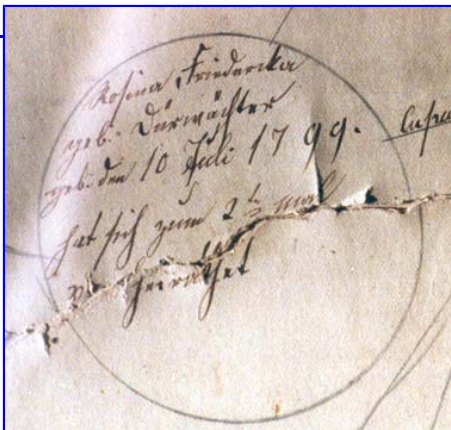 Rosina Friedericka
geb. Dürwächter
geb. den 10 Juli 1799.
hat sich zum 2t mal
heirathet